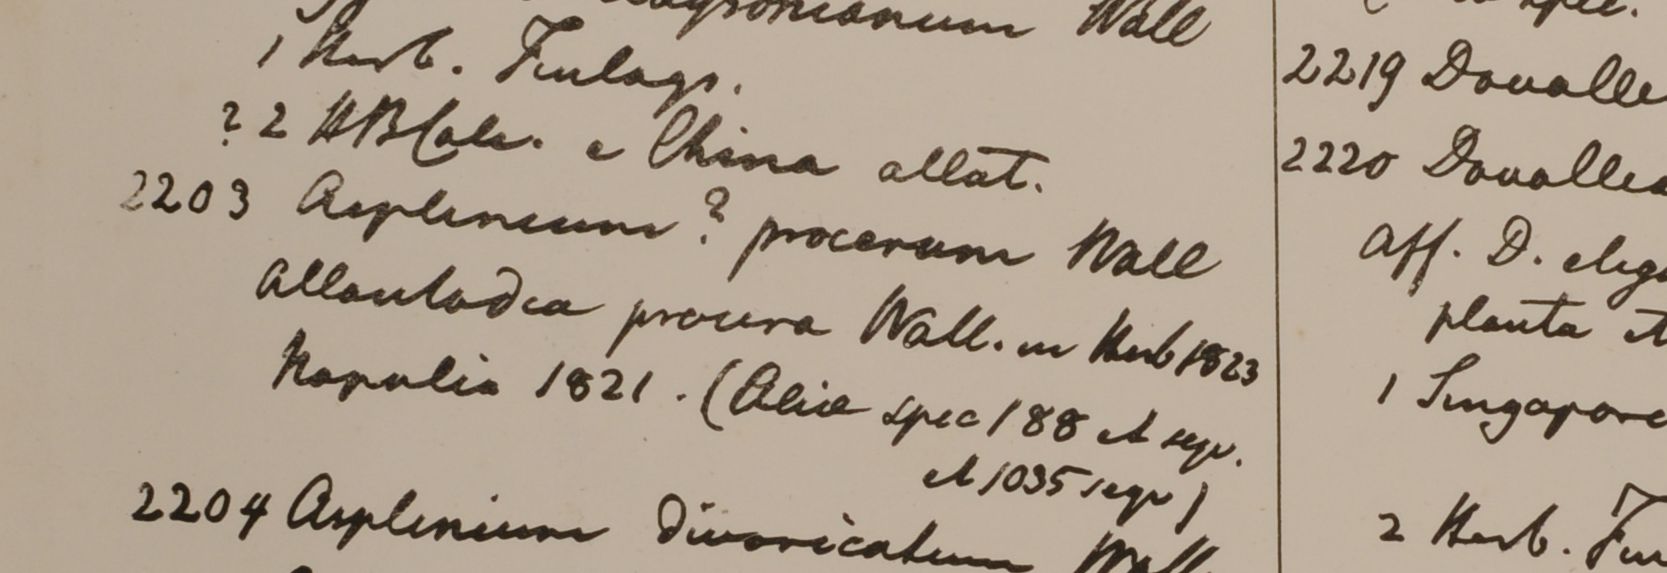 Wall
1 Herb. Finlays.
? 2 HBCalc. e China allat.
2203 Asplenium? procerum Wall
Allantodia procera Wall. in Herb 1823
Napalia 1821. (Aliae spec 188 et sequ.
et 1035 sequ)
2204 Asplenium divaricatum Wall
2219 Davallia
2220 Davallia
aff. D. elega
planta et
1 Singapore
2 Herb. Fin